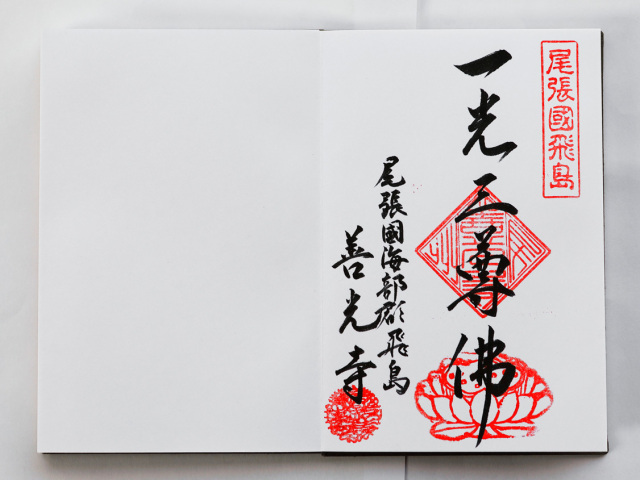 尾張國飛島
一光三尊佛
尾張國海部郡飛島
善光寺